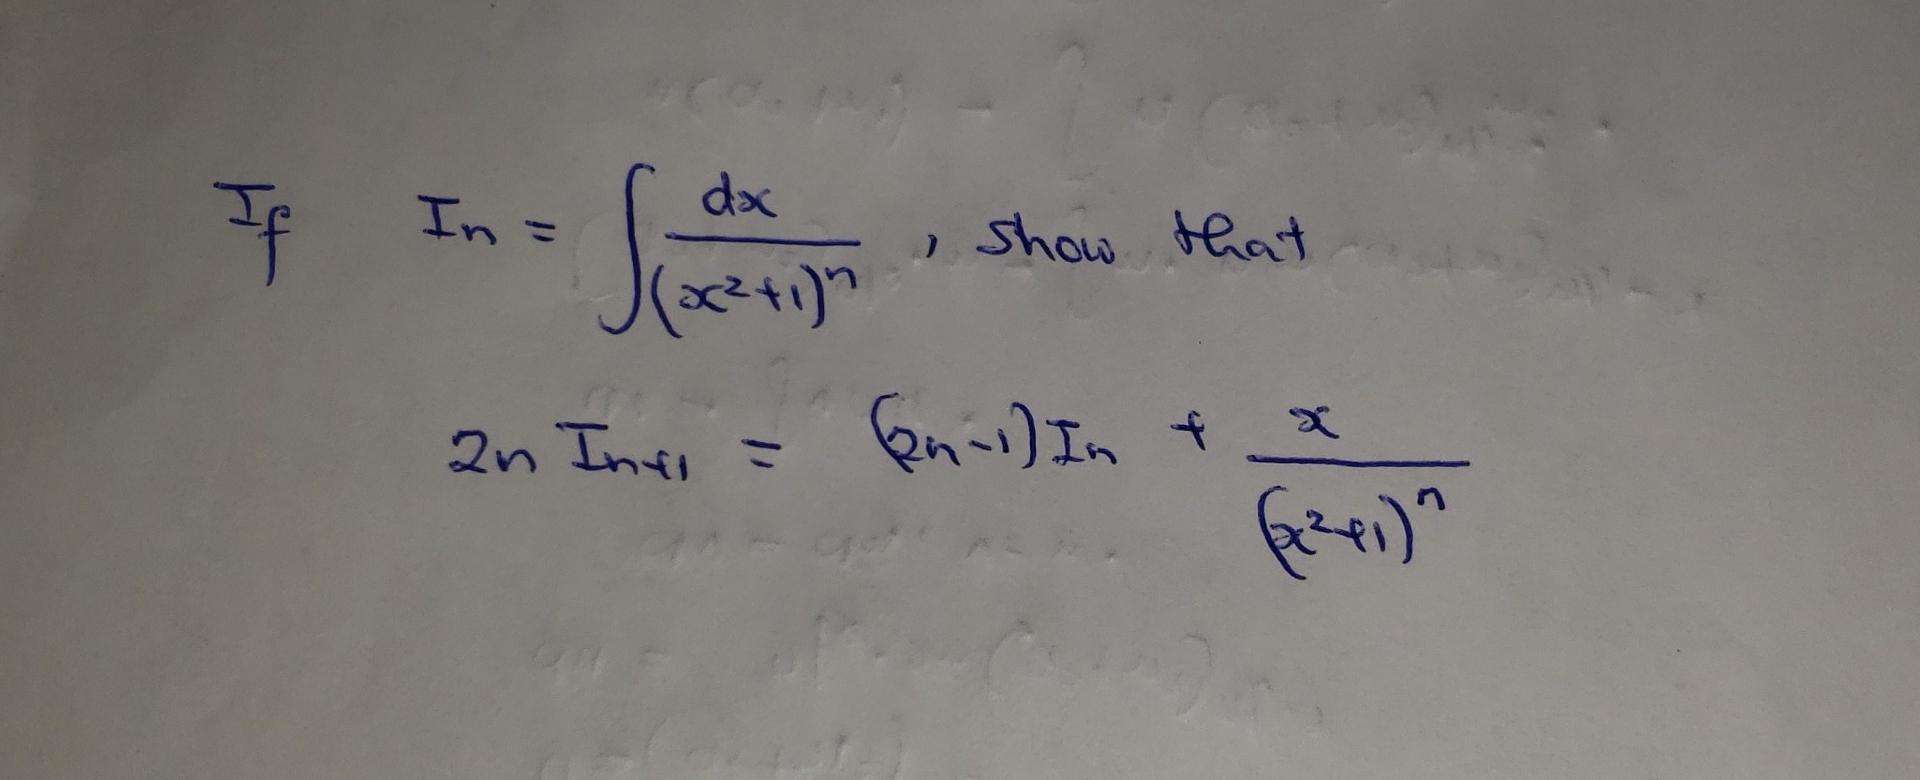 If In = ∫ dx/(x²+1)ⁿ , show that
2n In+1 = (2n-1) In + x/(x²+1)ⁿ